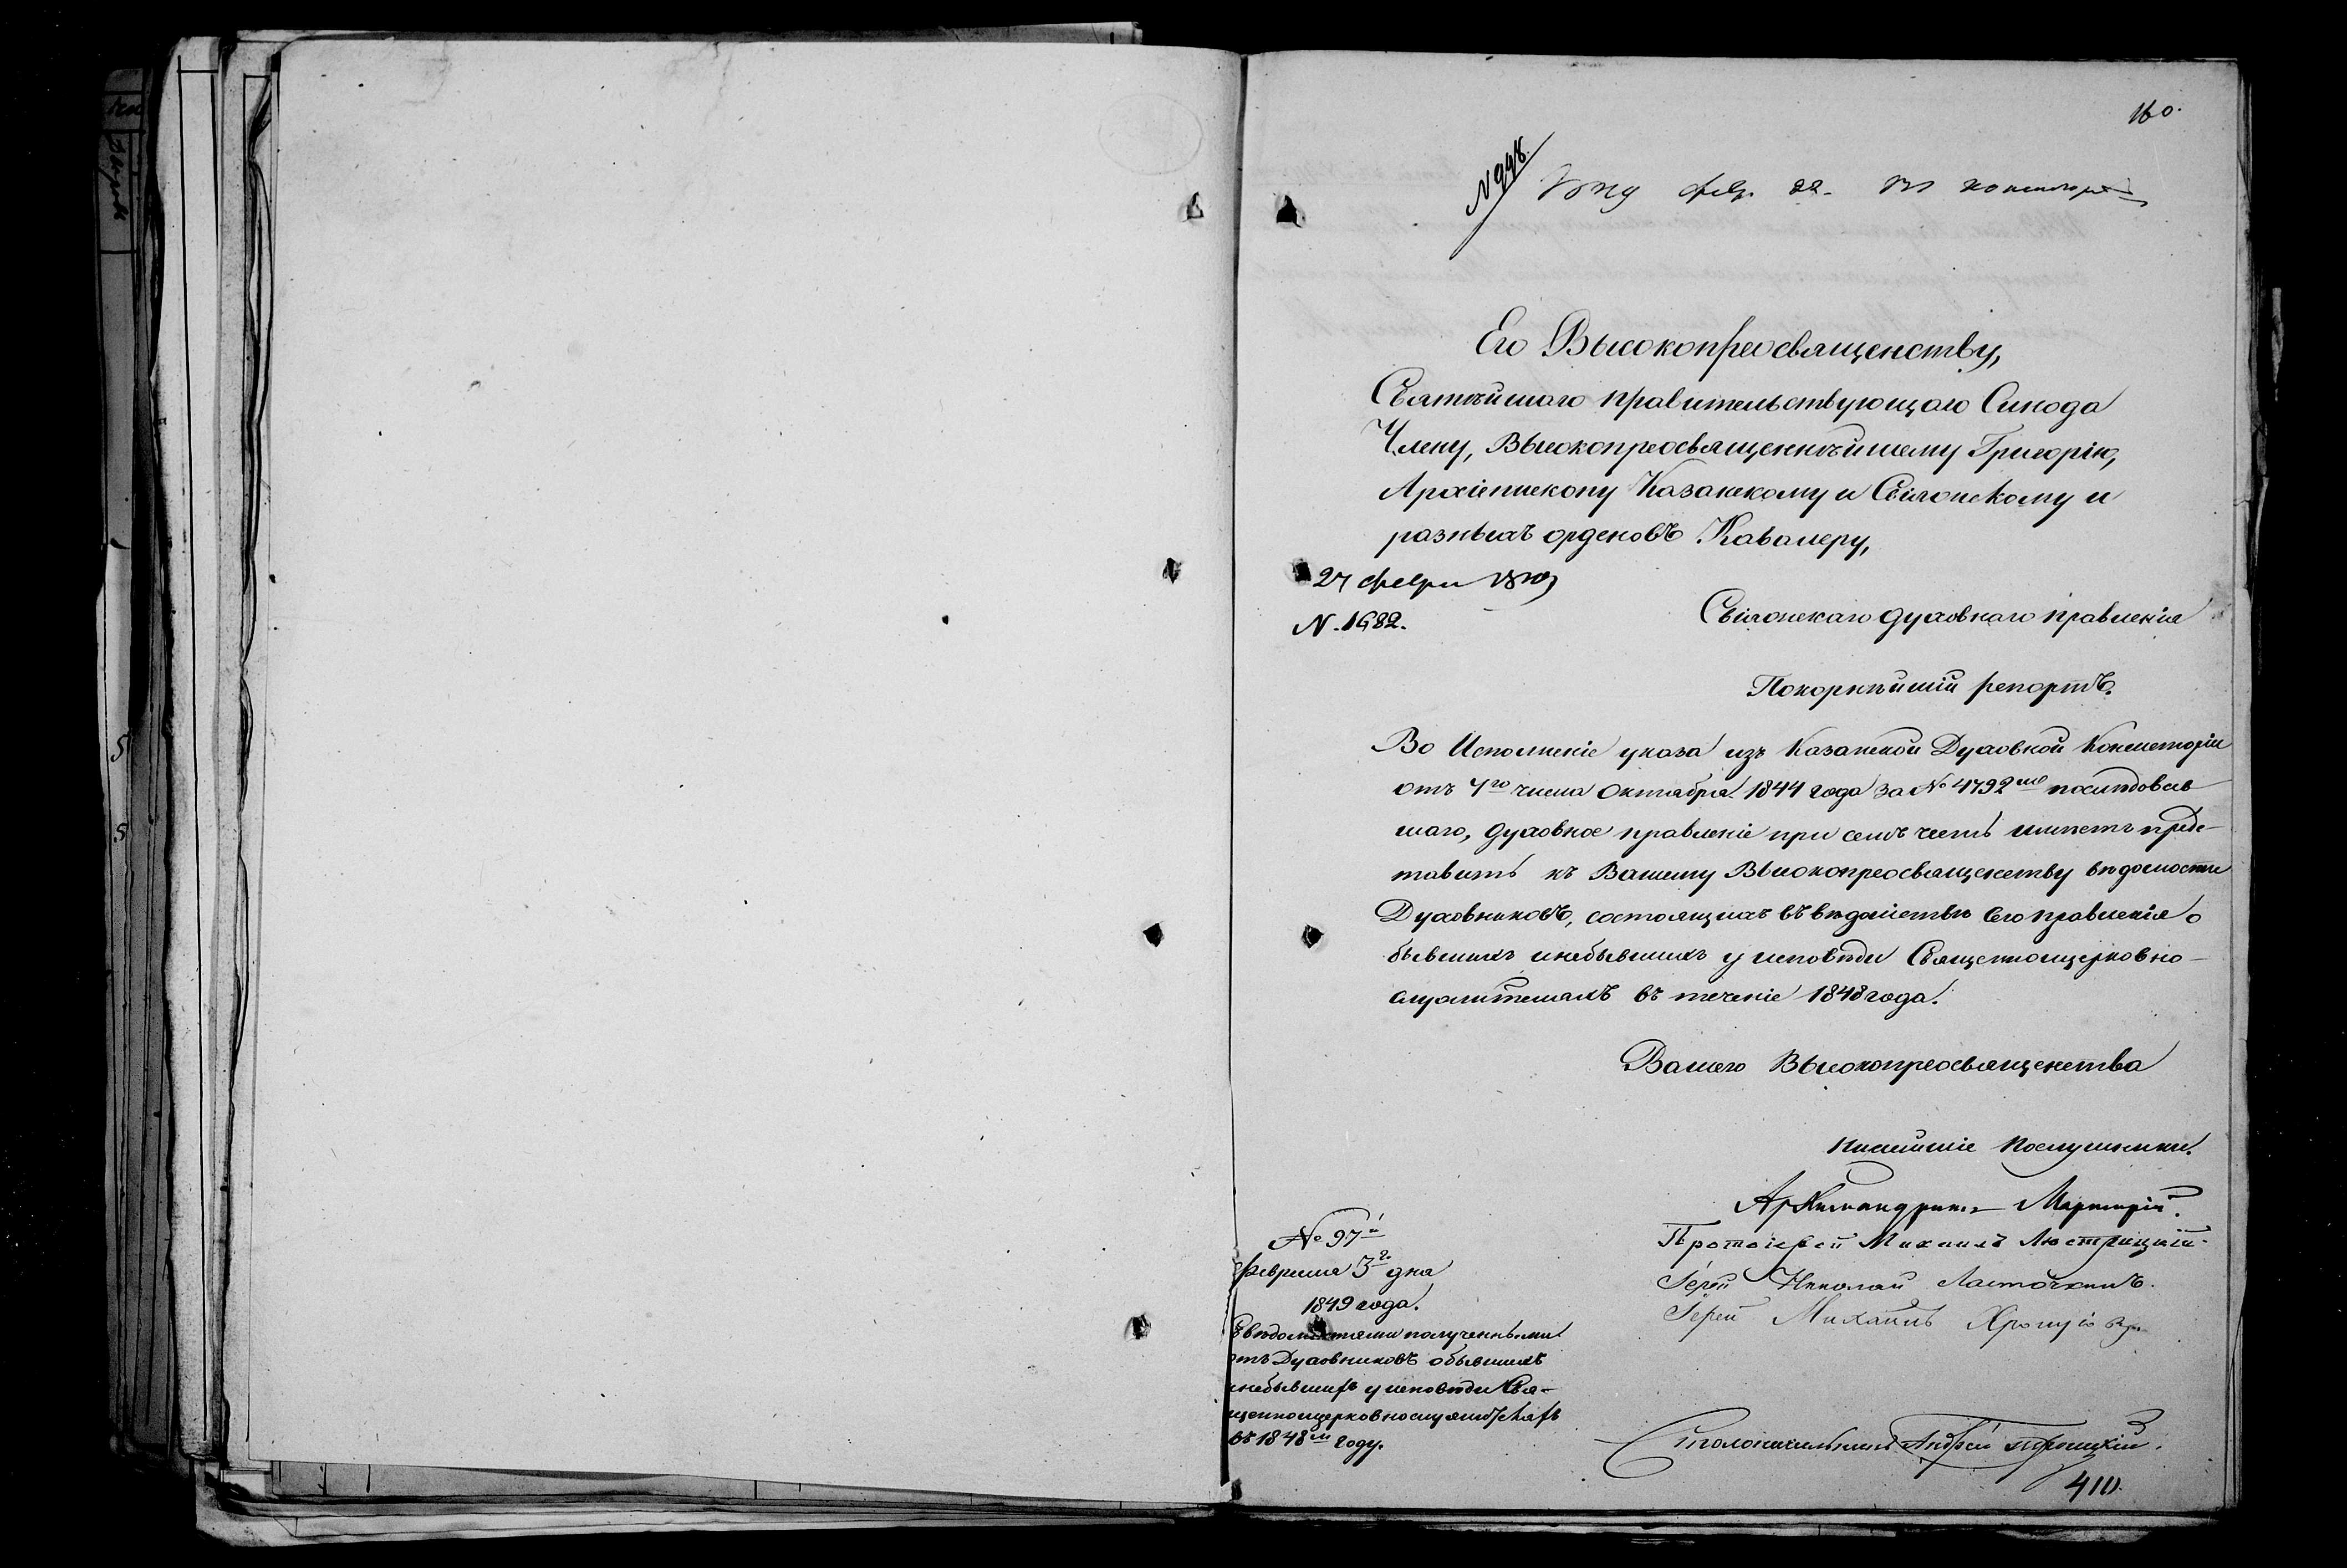 160.
N 998.
1849 фев. 22. Въ консисторію
Его Высокопреосвященству,
Святѣйшаго правительствующаго Синода
Члену, Высокопреосвященнѣйшему Григорію,
Архіепископу Казанскому и Свіяжскому и
разныхъ орденовъ Кавалеру,
27 февра 1849
N. 1682.
Свіяжскаго духовнаго правленія
Покорнѣйшій репортъ.
Во Исполненіе указа изъ Казанской Духовной Консисторіи
отъ 7го числа Октября 1844 года за № 4792мъ послѣдовав
шаго, духовное правленіе при семъ честь имѣетъ предс-
тавить къ Вашему Высокопреосвященству вѣдомости
Духовниковъ, состоящихъ въ вѣдомствѣ сего правленія о
бывшихъ и небывшихъ у исповѣди Священноицерковно-
служителяхъ въ теченіе 1848 года.
Вашего Высокопреосвященства
нижайшіе послушники.
Архимандритъ Мартирій.
Протоіерей Михаилъ Люстрицкій.
Іерей Николай Ласточкинъ.
Іерей Михаилъ
№ 97й
Февраля 3го дня
1849 года.
Съ вѣдомостями полученными
отъ Духовниковъ о бывшихъ
и небывшихъ у исповѣди Свя-
щенноицерковнослужителяхъ
въ 1848м году.
Столоначальникъ Андрей
410.